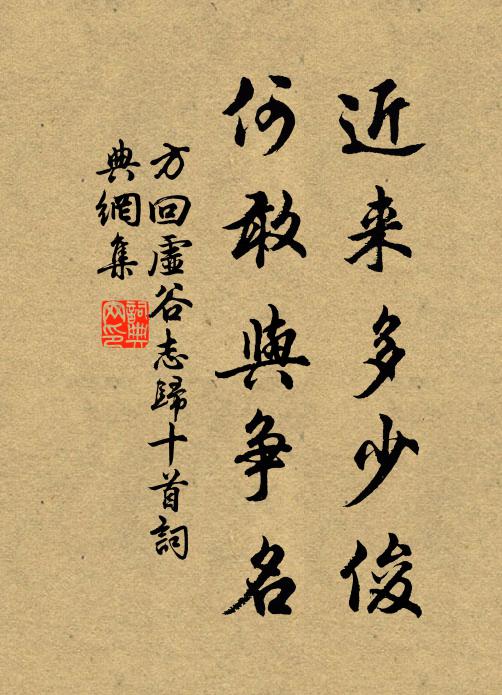 近来多少俊
何敢與争名
方回虛谷志歸十首詞
典網集
詞典網印